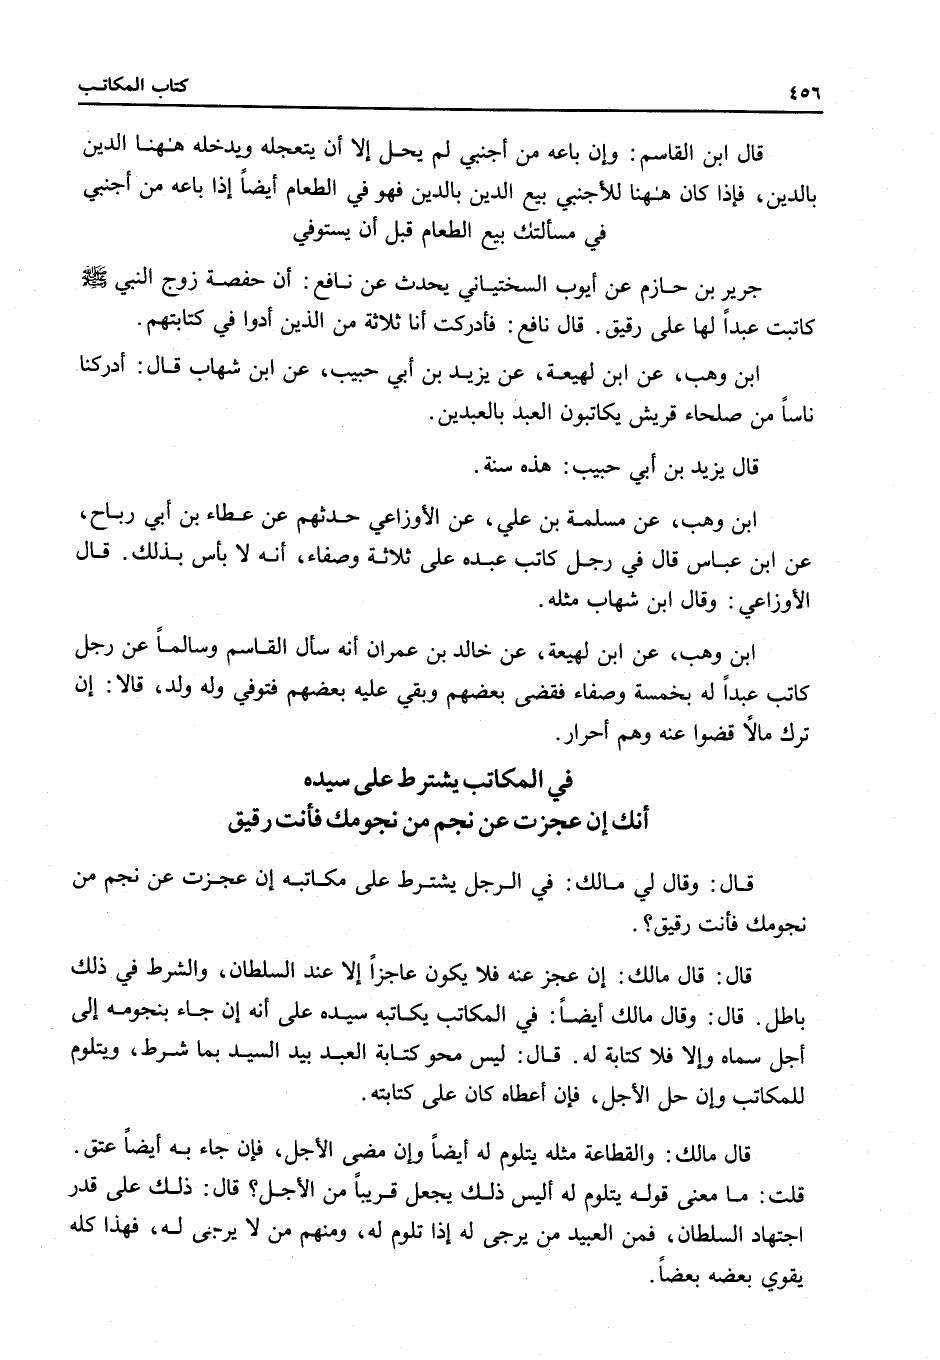 ٤٥٦ كتاب المكاتب
قال ابن القاسم: وإن باعه من أجنبي لم يحل إلا أن يتعجله ويدخله هـٰهنا الدين
بالدين، فإذا كان هـٰهنا للأجنبي بيع الدين بالدين فهو في الطعام أيضاً إذا باعه من أجنبي
في مسألتك بيع الطعام قبل أن يستوفي
جرير بن حازم عن أيوب السختياني يحدث عن نافع: أن حفصة زوج النبي ﷺ
كاتبت عبداً لها على رقيق. قال نافع: فأدركت أنا ثلاثة من الذين أدوا في كتابتهم.
ابن وهب، عن ابن لهيعة، عن يزيد بن أبي حبيب، عن ابن شهاب قال: أدركنا
ناساً من صلحاء قريش يكاتبون العبد بالعبدين.
قال يزيد بن أبي حبيب: هذه سنة.
ابن وهب، عن مسلمة بن علي، عن الأوزاعي حدثهم عن عطاء بن أبي رباح،
عن ابن عباس قال في رجل كاتب عبده على ثلاثة وصفاء، أنه لا بأس بذلك. قال
الأوزاعي: وقال ابن شهاب مثله.
ابن وهب، عن ابن لهيعة، عن خالد بن عمران أنه سأل القاسم وسالماً عن رجل
كاتب عبداً له بخمسة وصفاء فقضى بعضهم وبقي عليه بعضهم فتوفي وله ولد، قالا: إن
ترك مالًا قضوا عنه وهم أحرار.
في المكاتب يشترط على سيده
أنك إن عجزت عن نجم من نجومك فأنت رقيق
قال: وقال لي مالك: في الرجل يشترط على مكاتبه إن عجزت عن نجم من
نجومك فأنت رقيق؟.
قال: قال مالك: إن عجز عنه فلا يكون عاجزاً إلا عند السلطان، والشرط في ذلك
باطل. قال: وقال مالك أيضاً: في المكاتب يكاتبه سيده على أنه إن جاء بنجومه إلى
أجل سماه وإلا فلا كتابة له. قال: ليس محو كتابة العبد بيد السيد بما شرط، ويتلوم
للمكاتب وإن حل الأجل، فإن أعطاه كان على كتابته.
قال مالك: والقطاعة مثله يتلوم له أيضاً وإن مضى الأجل، فإن جاء به أيضاً عتق.
قلت: ما معنى قوله يتلوم له أليس ذلك يجعل قريباً من الأجل؟ قال: ذلك على قدر
اجتهاد السلطان، فمن العبيد من يرجى له إذا تلوم له، ومنهم من لا يرجى له، فهذا كله
يقوي بعضه بعضاً.